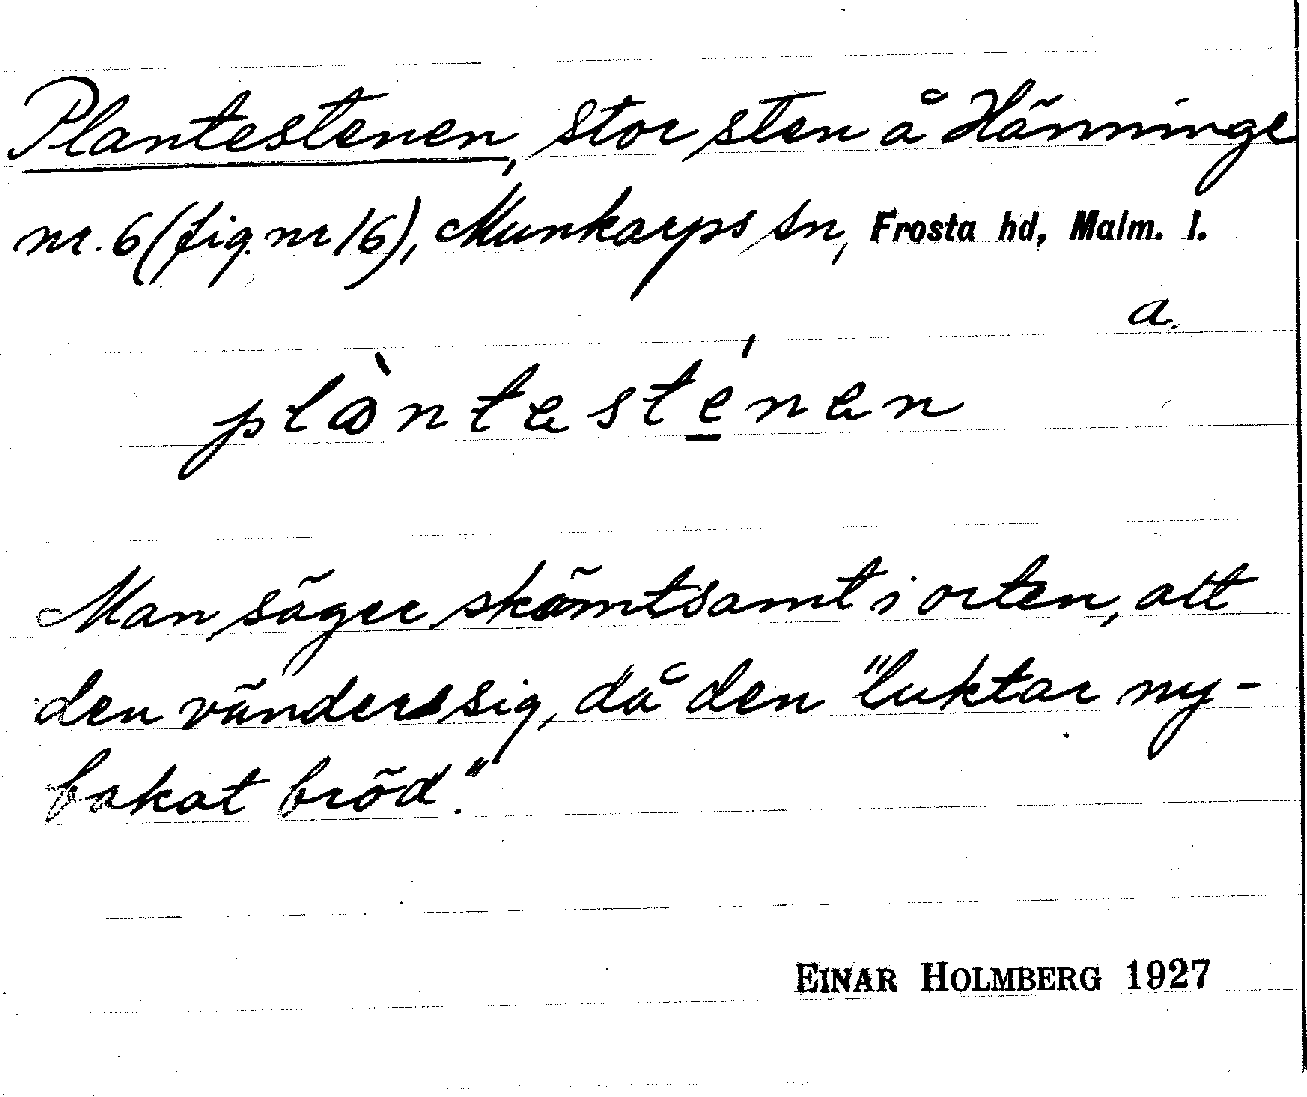 Plantestenen, stor sten å Hänninge
nr. 6 (fig. nr 16), Munkarps sn, Frosta hd, Malm. l.
a.
plàntesténen
Man säger skämtsamt i orten, att
den vänder sig, då den "luktar ny-
bakat bröd."
EINAR HOLMBERG 1927